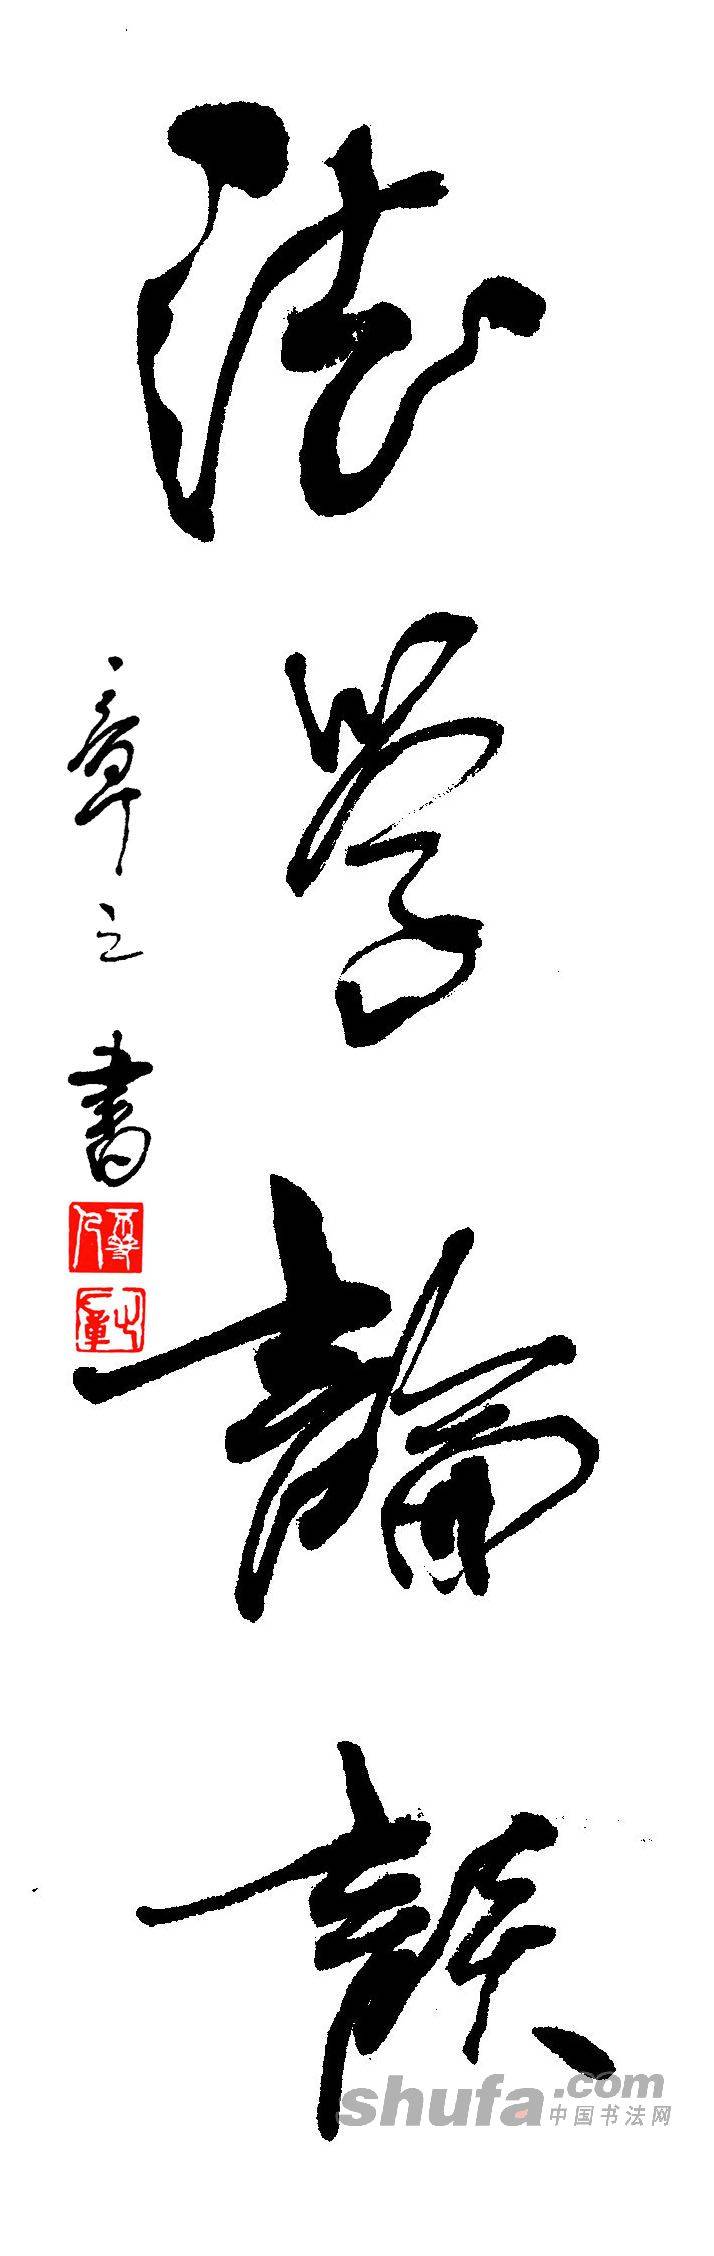 法學論談
章之書
shufa.com
中国书法网